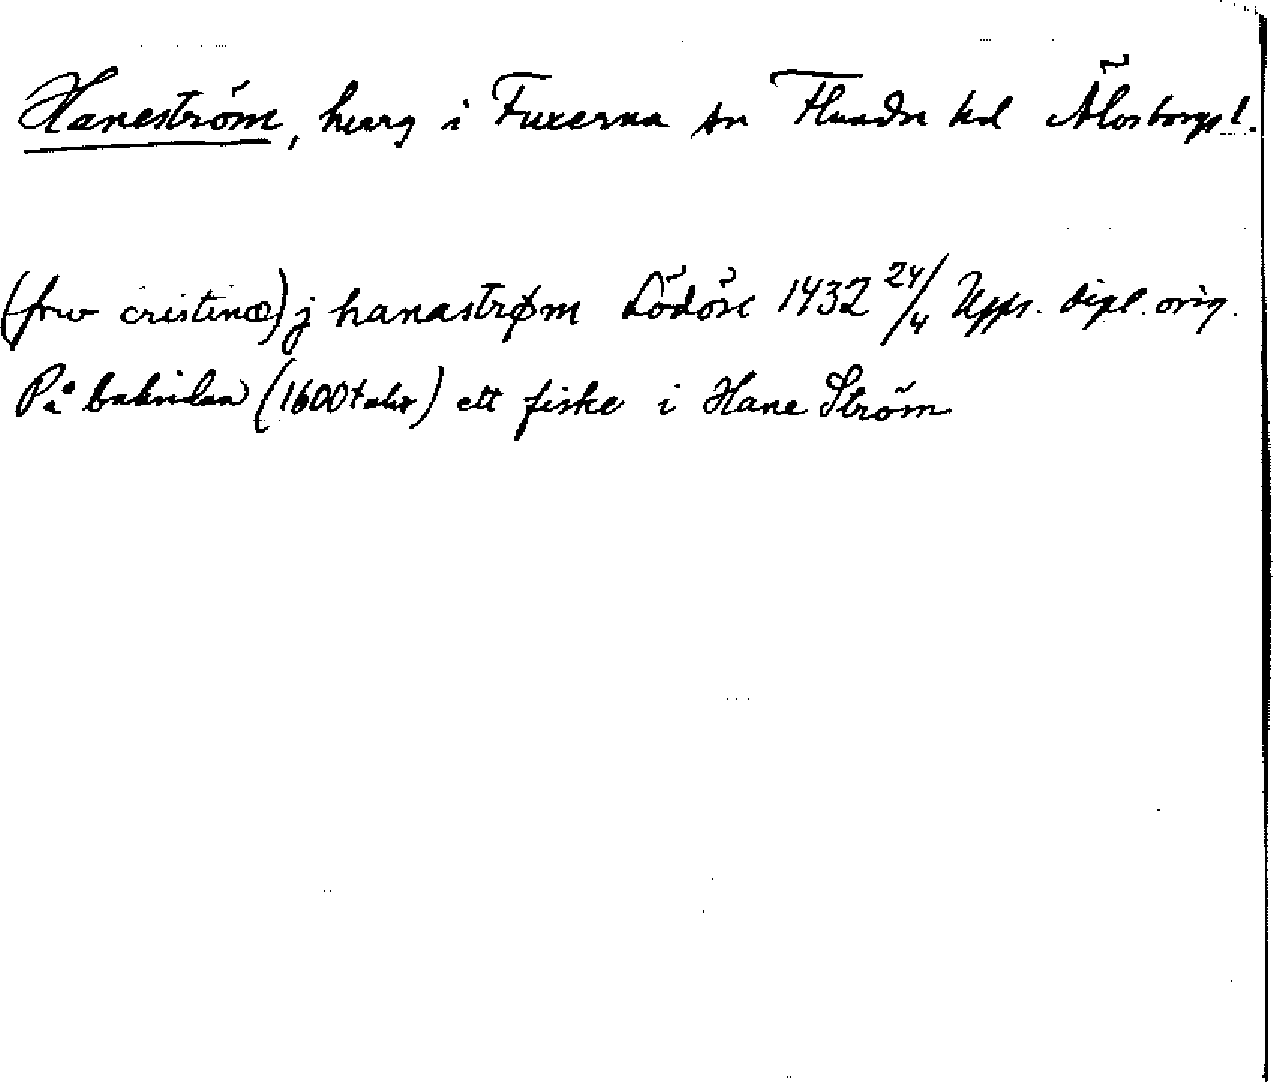 Haneström, herrg i Fuxerna sn Flundre hd Älvsborgs l.
(frw cristinæ) j hanastrøm Lödöse 1432 24/4 Upps. dipl. orig.
På baksidan (1600 talet) ett fiske i Hane Ström